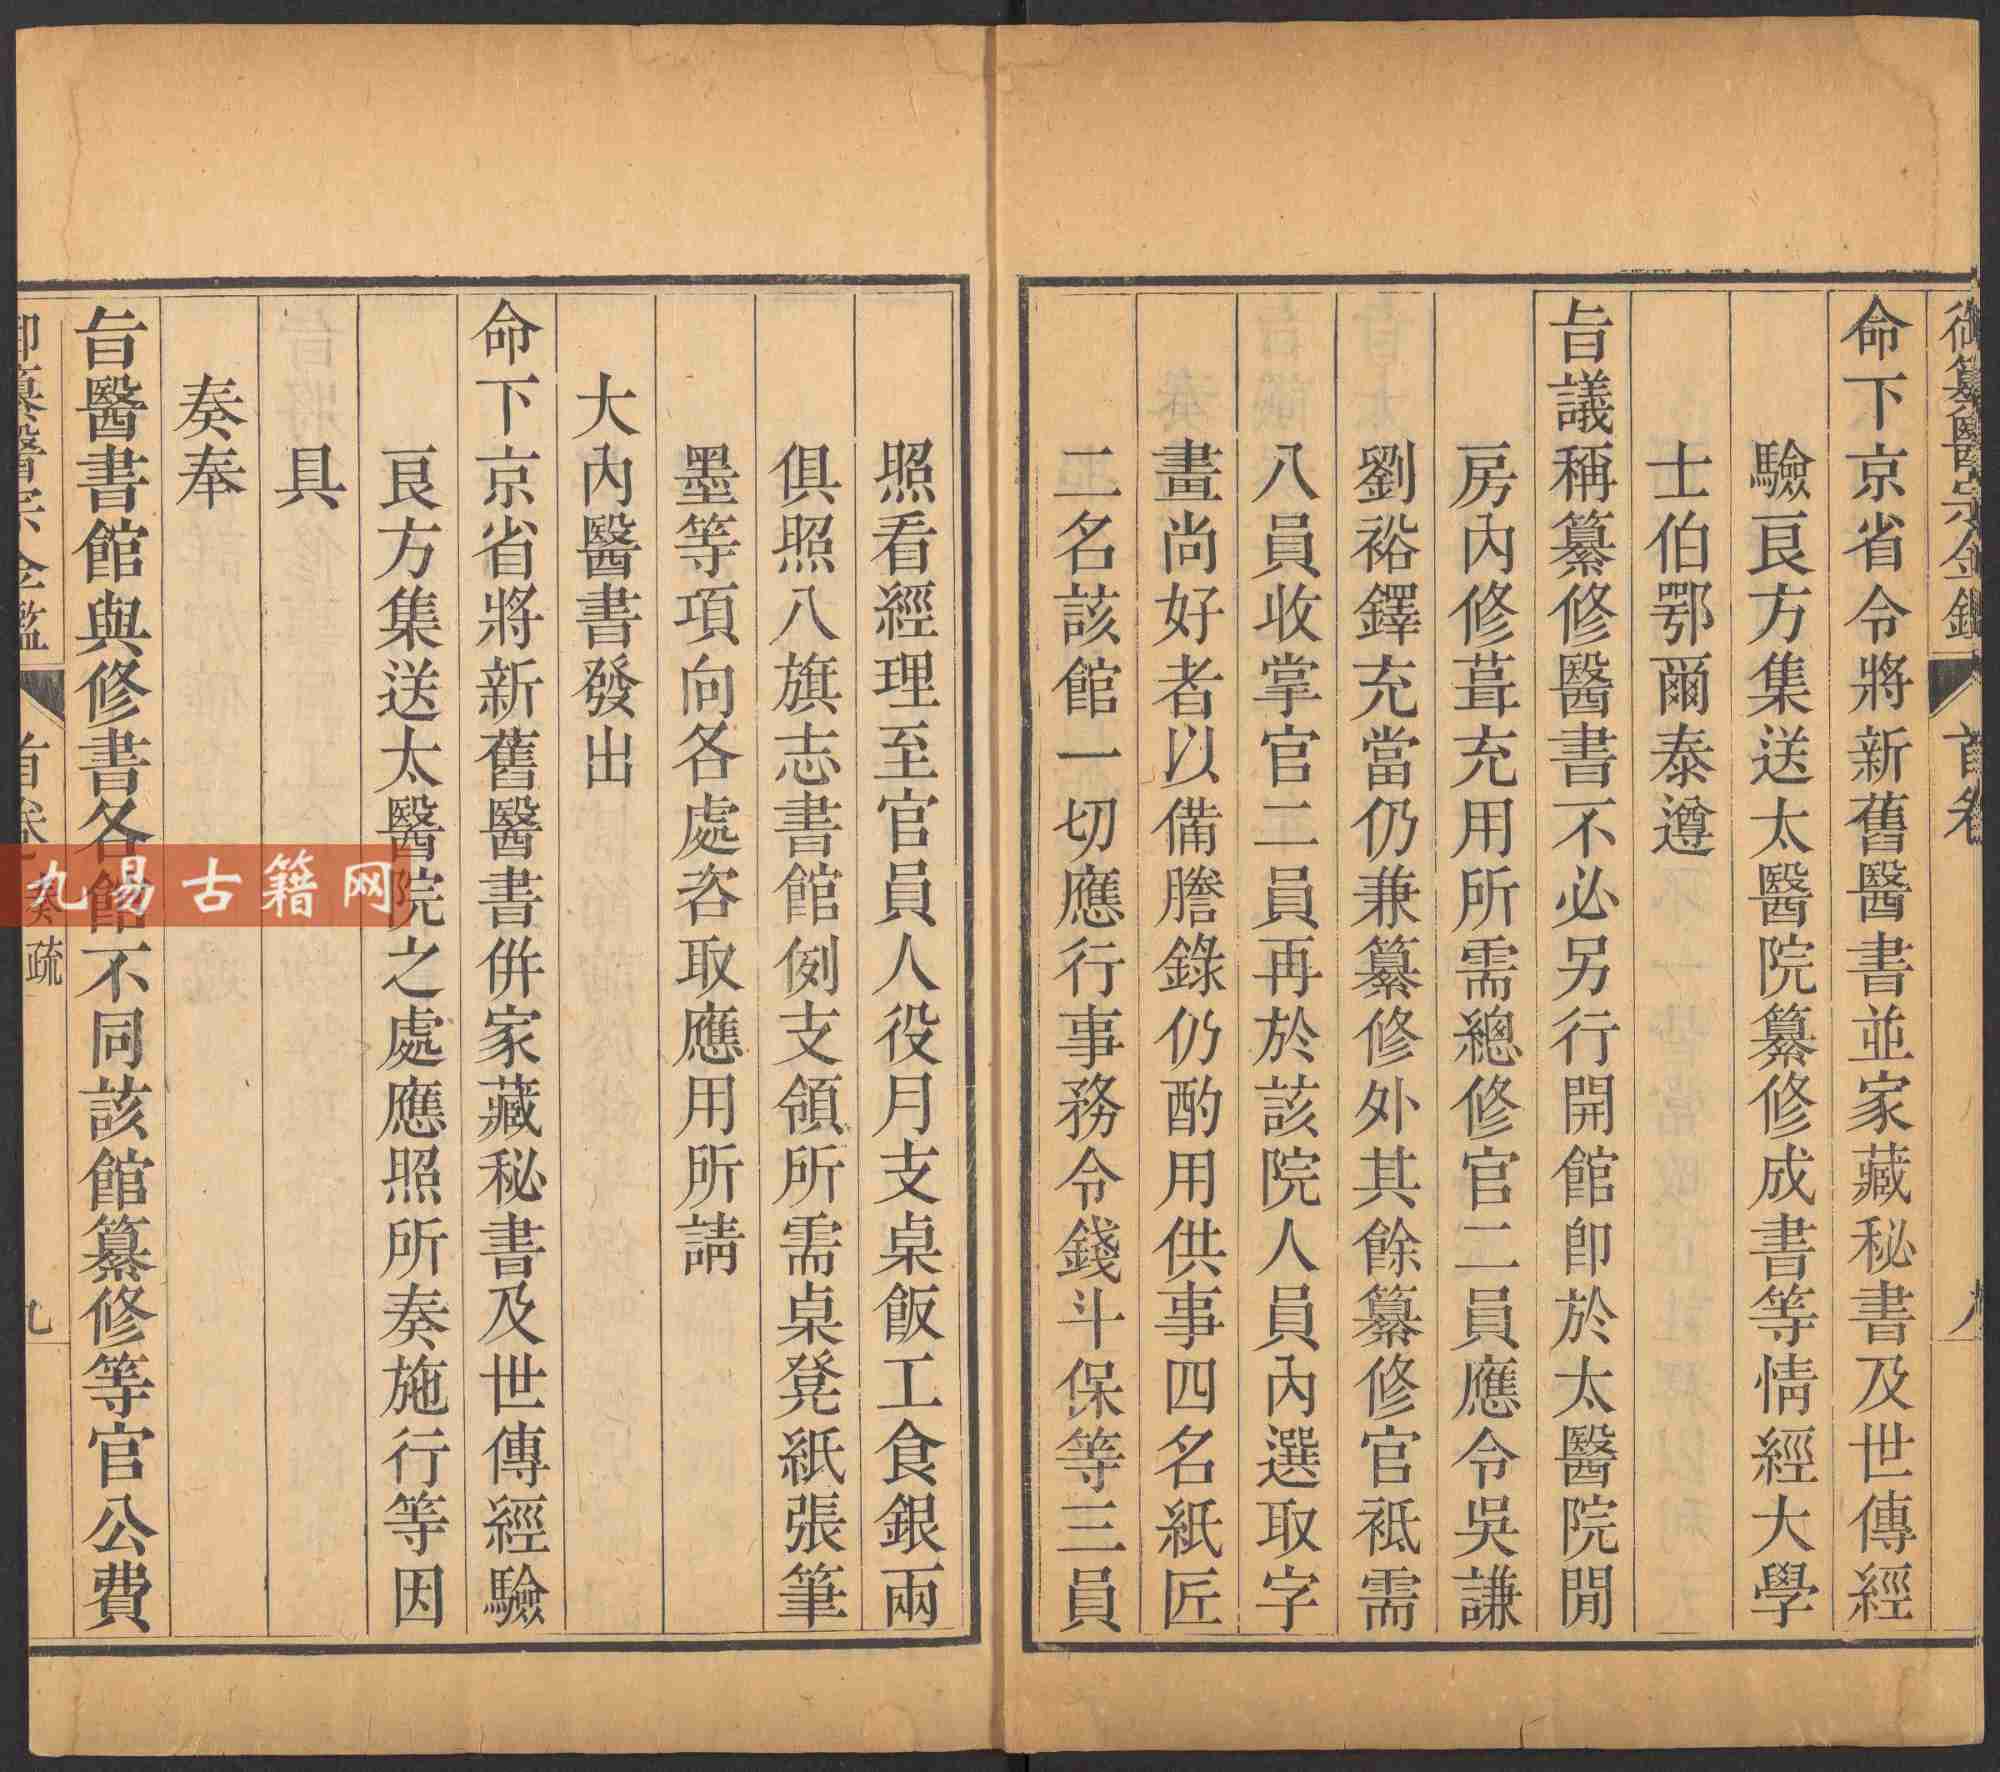 御纂醫宗金鑑 首卷 八
命下京省令將新舊醫書並家藏秘書及世傳經
驗良方集送太醫院纂修成書等情經大學
士伯鄂爾泰遵
旨議稱纂修醫書不必另行開館卽於太醫院閒
房內修葺充用所需總修官二員應令吳謙
劉裕鐸充當仍兼纂修外其餘纂修官祗需
八員收掌官二員再於該院人員內選取字
畫尚好者以備謄錄仍酌用供事四名紙匠
二名該館一切應行事務令錢斗保等三員
照看經理至官員人役月支桌飯工食銀兩
俱照八旗志書館例支領所需桌凳紙張筆
墨等項向各處咨取應用所請
大內醫書發出
命下京省將新舊醫書併家藏秘書及世傳經驗
良方集送太醫院之處應照所奏施行等因
具
奏奉
旨醫書館與修書各館不同該館纂修等官公費
御纂醫宗金鑑 首卷 奏疏 九
九易古籍网